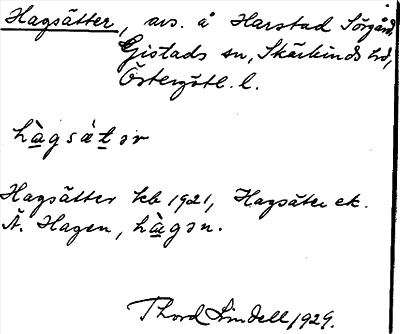 Hagsätter, avs. å Harstad Sörgård,
Gistads sn, Skärkinds hd,
Östergötl. l.
hàgsátər
Hagsätter kb 1921, Hagsäter ek.
Ä. Hagen, hàgən.
Thord Lindell 1929.